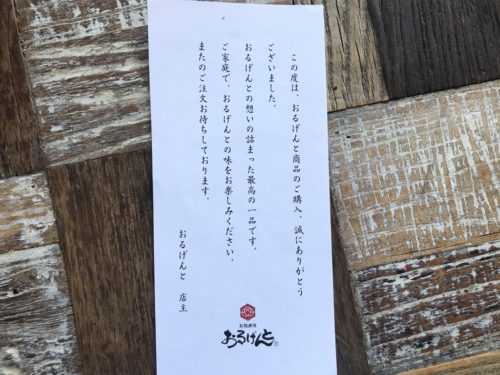 この度は、おるげんと商品のご購入、誠にありがとう
ございました。
おるげんとの想いの詰まった最高の一品です。
ご家庭で、おるげんとの味をお楽しみください。
またのご注文お待ちしております。
おるげんと 店主
おるげんと